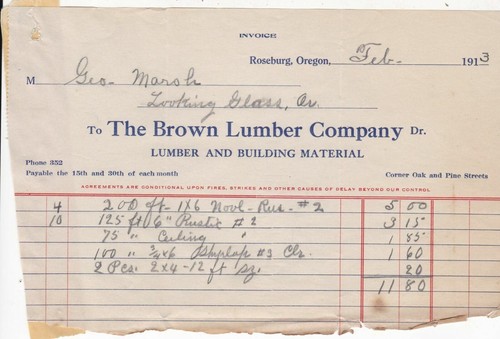 INVOICE
Roseburg, Oregon, Feb- 1913
M Geo- Marsh
Looking Glass, Or.
To The Brown Lumber Company Dr.
LUMBER AND BUILDING MATERIAL
Phone 352
Payable the 15th and 30th of each month Corner Oak and Pine Streets
AGREEMENTS ARE CONDITIONAL UPON FIRES, STRIKES AND OTHER CAUSES OF DELAY BEYOND OUR CONTROL
4 200 ft- 1x6 - Rus- #2 5 00
10 125 ft 6" Rustic #2 3 15
75 " Ceiling " 1 85
100 " x6 Shplap #3 Clr. 1 60
2 Pcs. 2x4-12 ft sz. 20
11 80